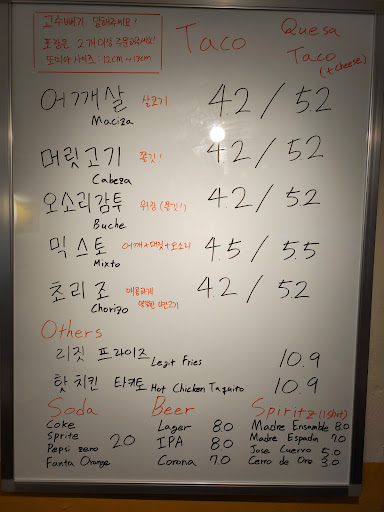 고수빼기 말해주세요!
포장은 2개 이상 주문해주세요!
또띠아 사이즈: 12cm ~ 13cm
Taco
Quesa Taco (+cheese)
어깨살 살코기 4.2 / 5.2
Maciza
머릿고기 쫄깃! 4.2 / 5.2
Cabeza
오소리감투 위장 (쫄깃!) 4.2 / 5.2
Buche
믹스토 어깨+머릿+오소리 4.5 / 5.5
Mixto
초리조 매콤하게 4.2 / 5.2
Chorizo
Others
리짓 프라이즈 Legit Fries 10.9
핫치킨 타키토 Hot Chicken Taquito 10.9
Soda Beer Spiritz (1shot)
Coke Lager 8.0 Madre Ensamble 8.0
Sprite 2.0 IPA 8.0 Madre Espadin 7.0
Pepsi zero Corona 7.0 Jose Cuervo 5.0
Fanta Orange Cerro de Oro 3.0